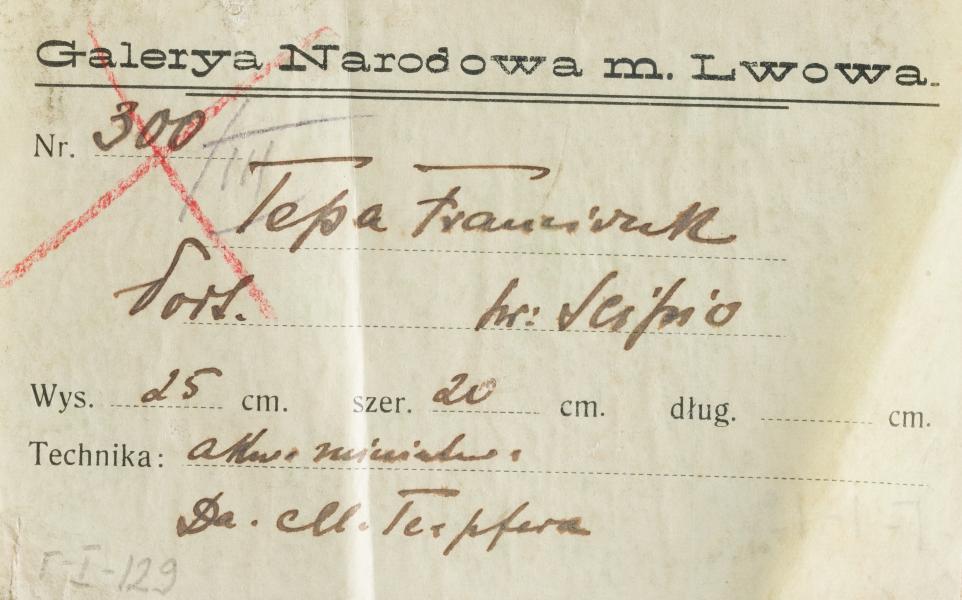 Galerya Narodowa m. Lwowa.
Nr. 300
Tepa Franciszek
Port. hr: Scipio
Wys. 25 cm. szer. 20 cm. dług. cm.
Technika: akw. miniatur.
Da. M.
Γ-I-129